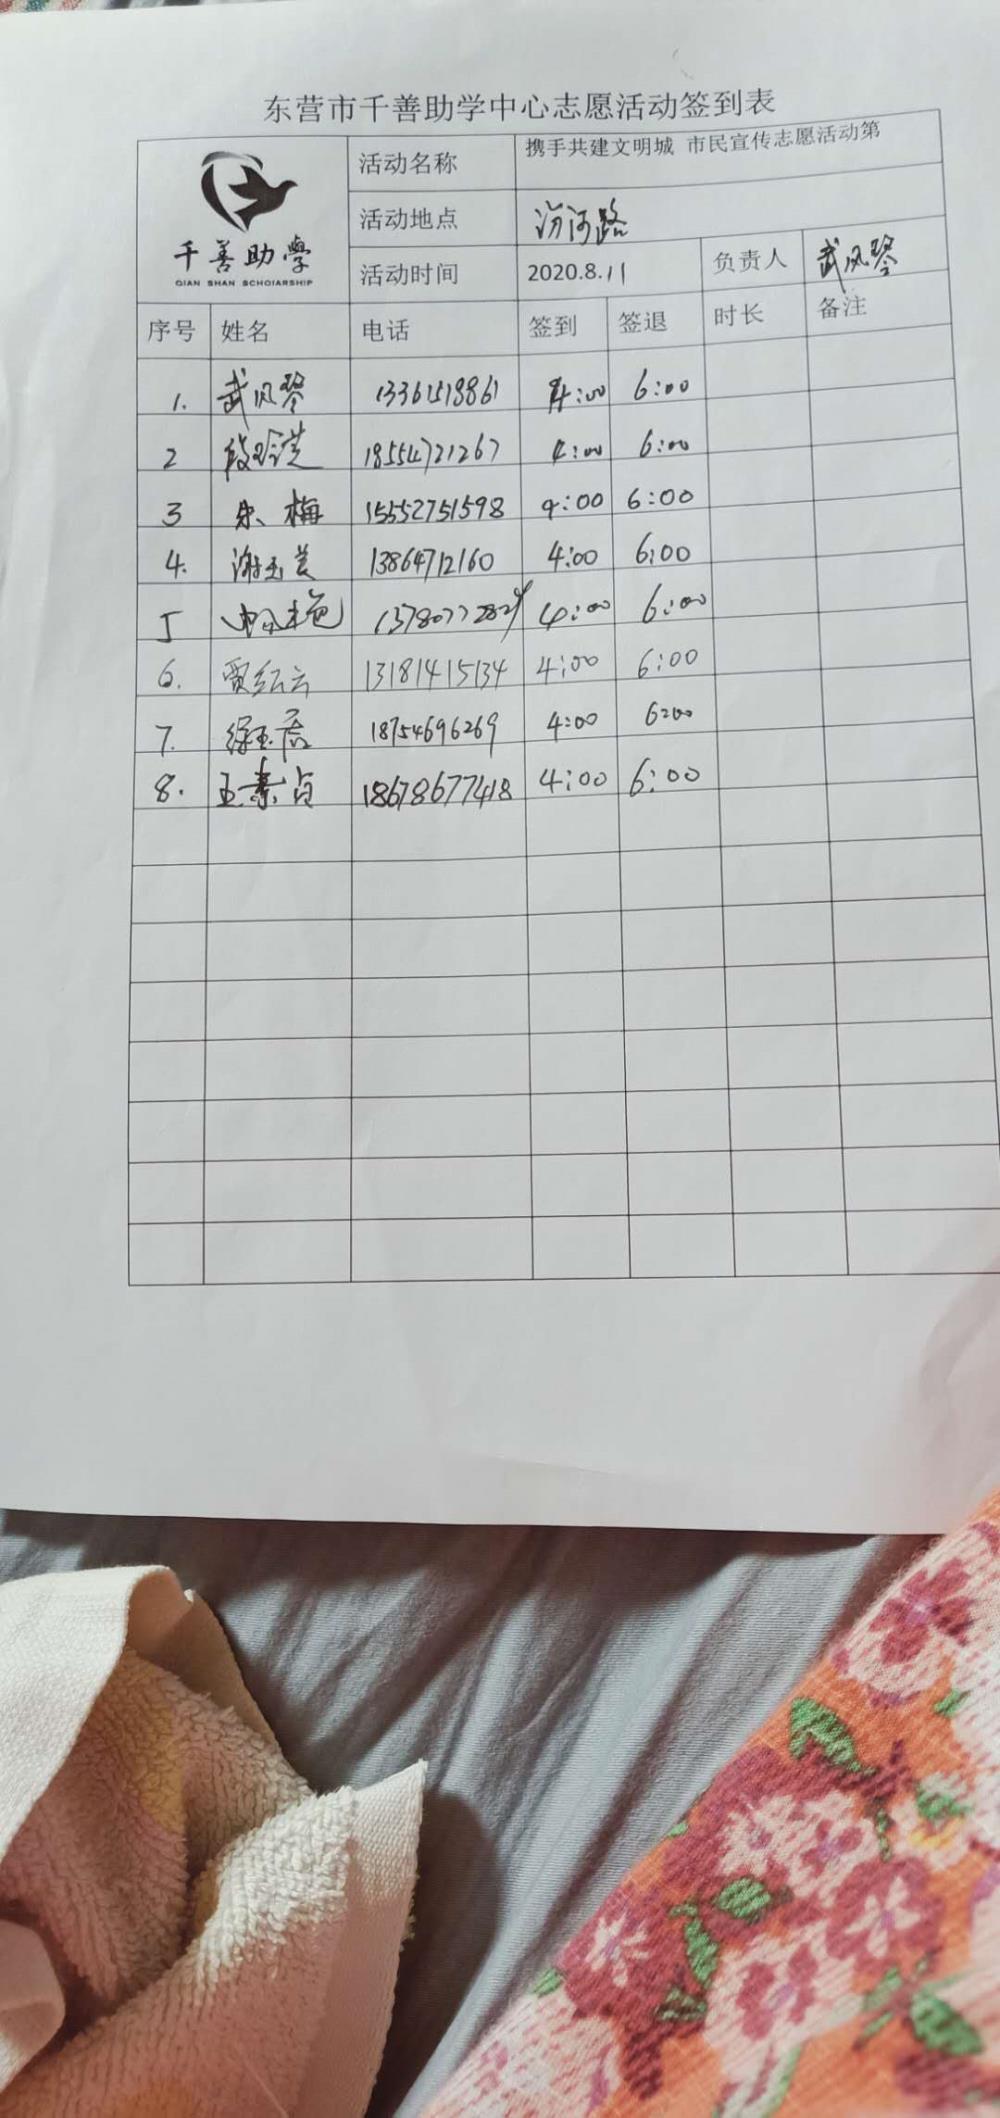 东营市千善助学中心志愿活动签到表
千善助學
QIAN SHAN SCHOIARSHIP
活动名称 携手共建文明城 市民宣传志愿活动第
活动地点 汾河路
活动时间 2020.8.11 负责人 武风琴
序号 姓名 电话 签到 签退 时长 备注
1. 武风琴 13361518861 4:00 6:00
2 18554721267 4:00 6:00
3 朱梅 15552751598 4:00 6:00
4. 谢玉美 13864712160 4:00 6:00
5 4:00 6:00
6. 贾红云 13181415134 4:00 6:00
7. 徐玉君 18754696269 4:00 6:00
8. 王素贞 18678677418 4:00 6:00